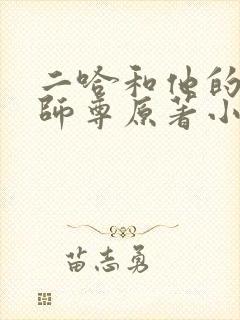 二哈和他的
師尊原著小
苗志勇